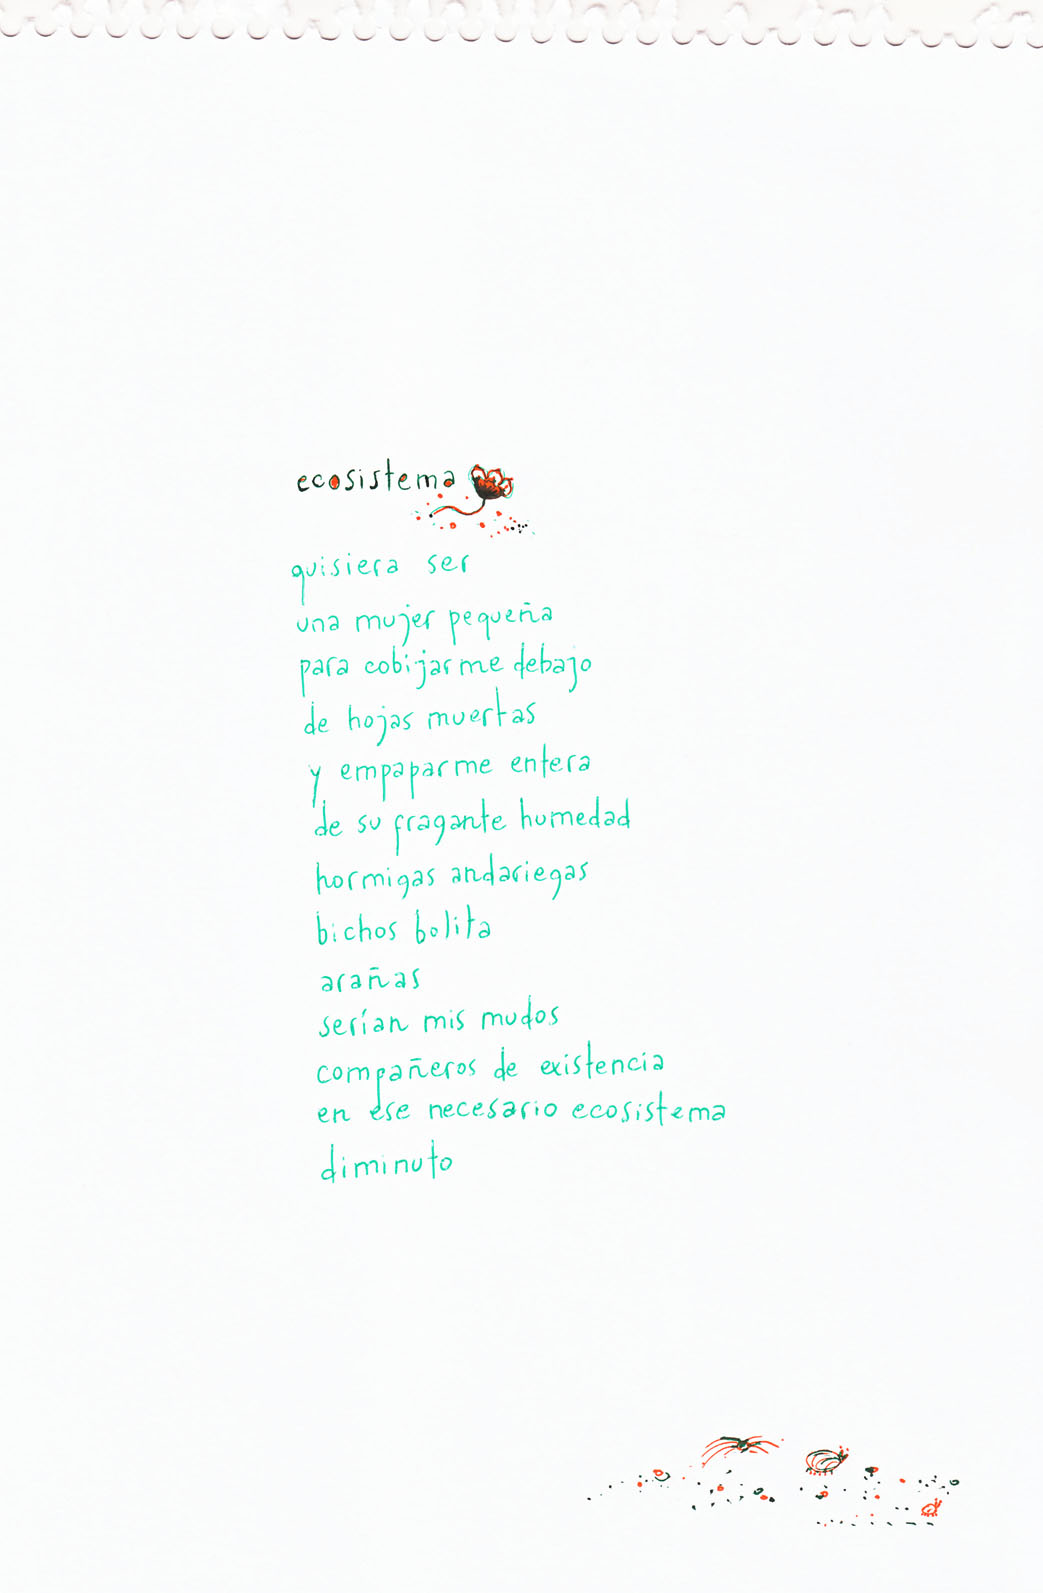 ecosistema
quisiera ser
una mujer pequeña
para cobijarme debajo
de hojas muertas
y empaparme entera
de su fragante humedad
hormigas andariegas
bichos bolita
arañas
serían mis mudos
compañeros de existencia
en ese necesario ecosistema
diminuto